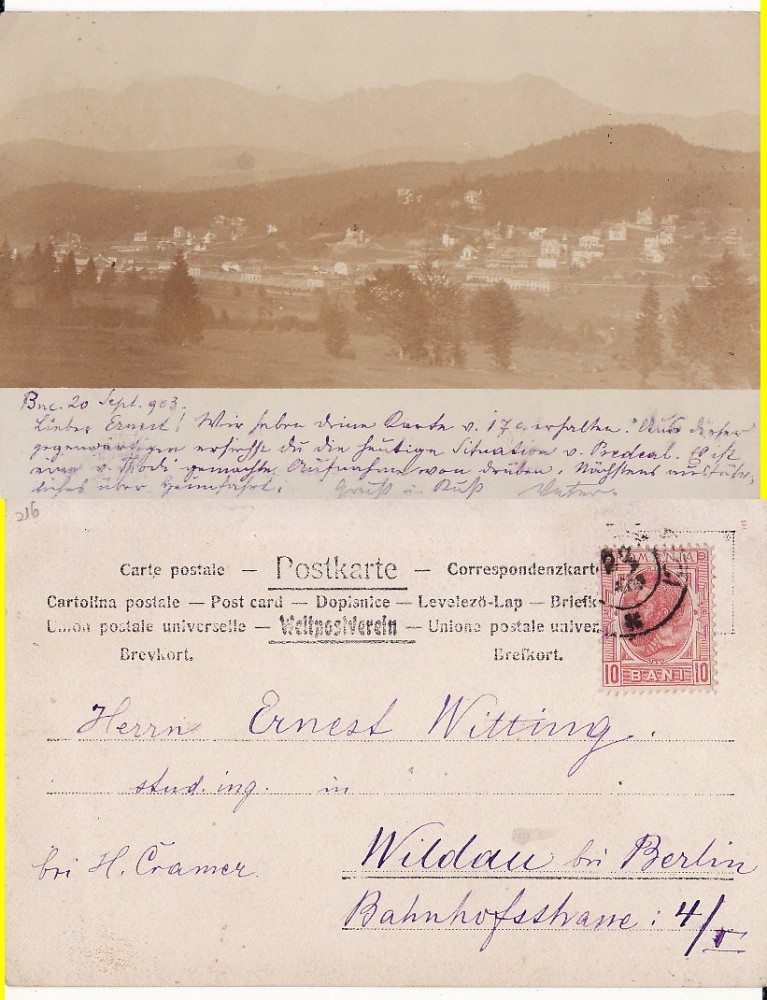 Buc. 20 Sept. 903.
Lieber Ernest! Wir haben deine Karte v. 17 c. erhalten. Aus dieser
gegenwärtigen ersiehst du die heutige Situation v. Predeal. Es ist
eine v. Thodi gemachte Aufnahme von drüben. Nächstens ausführ-
liches über Heimfahrt. Gruß u. Kuß Vater.
216
Carte postale — Postkarte — Correspondenzkart
Cartolina postale — Post card — Dopisnice — Levelező-Lap — Briefk
Union postale universelle — Weltpostverein — Unione postale univer
Brevkort. Brefkort.
10 BANI 10
Herrn Ernest Witting.
stud. ing. in
Wildau bei Berlin
bei H. Cramer.
Bahnhofsstrasse: 4/I